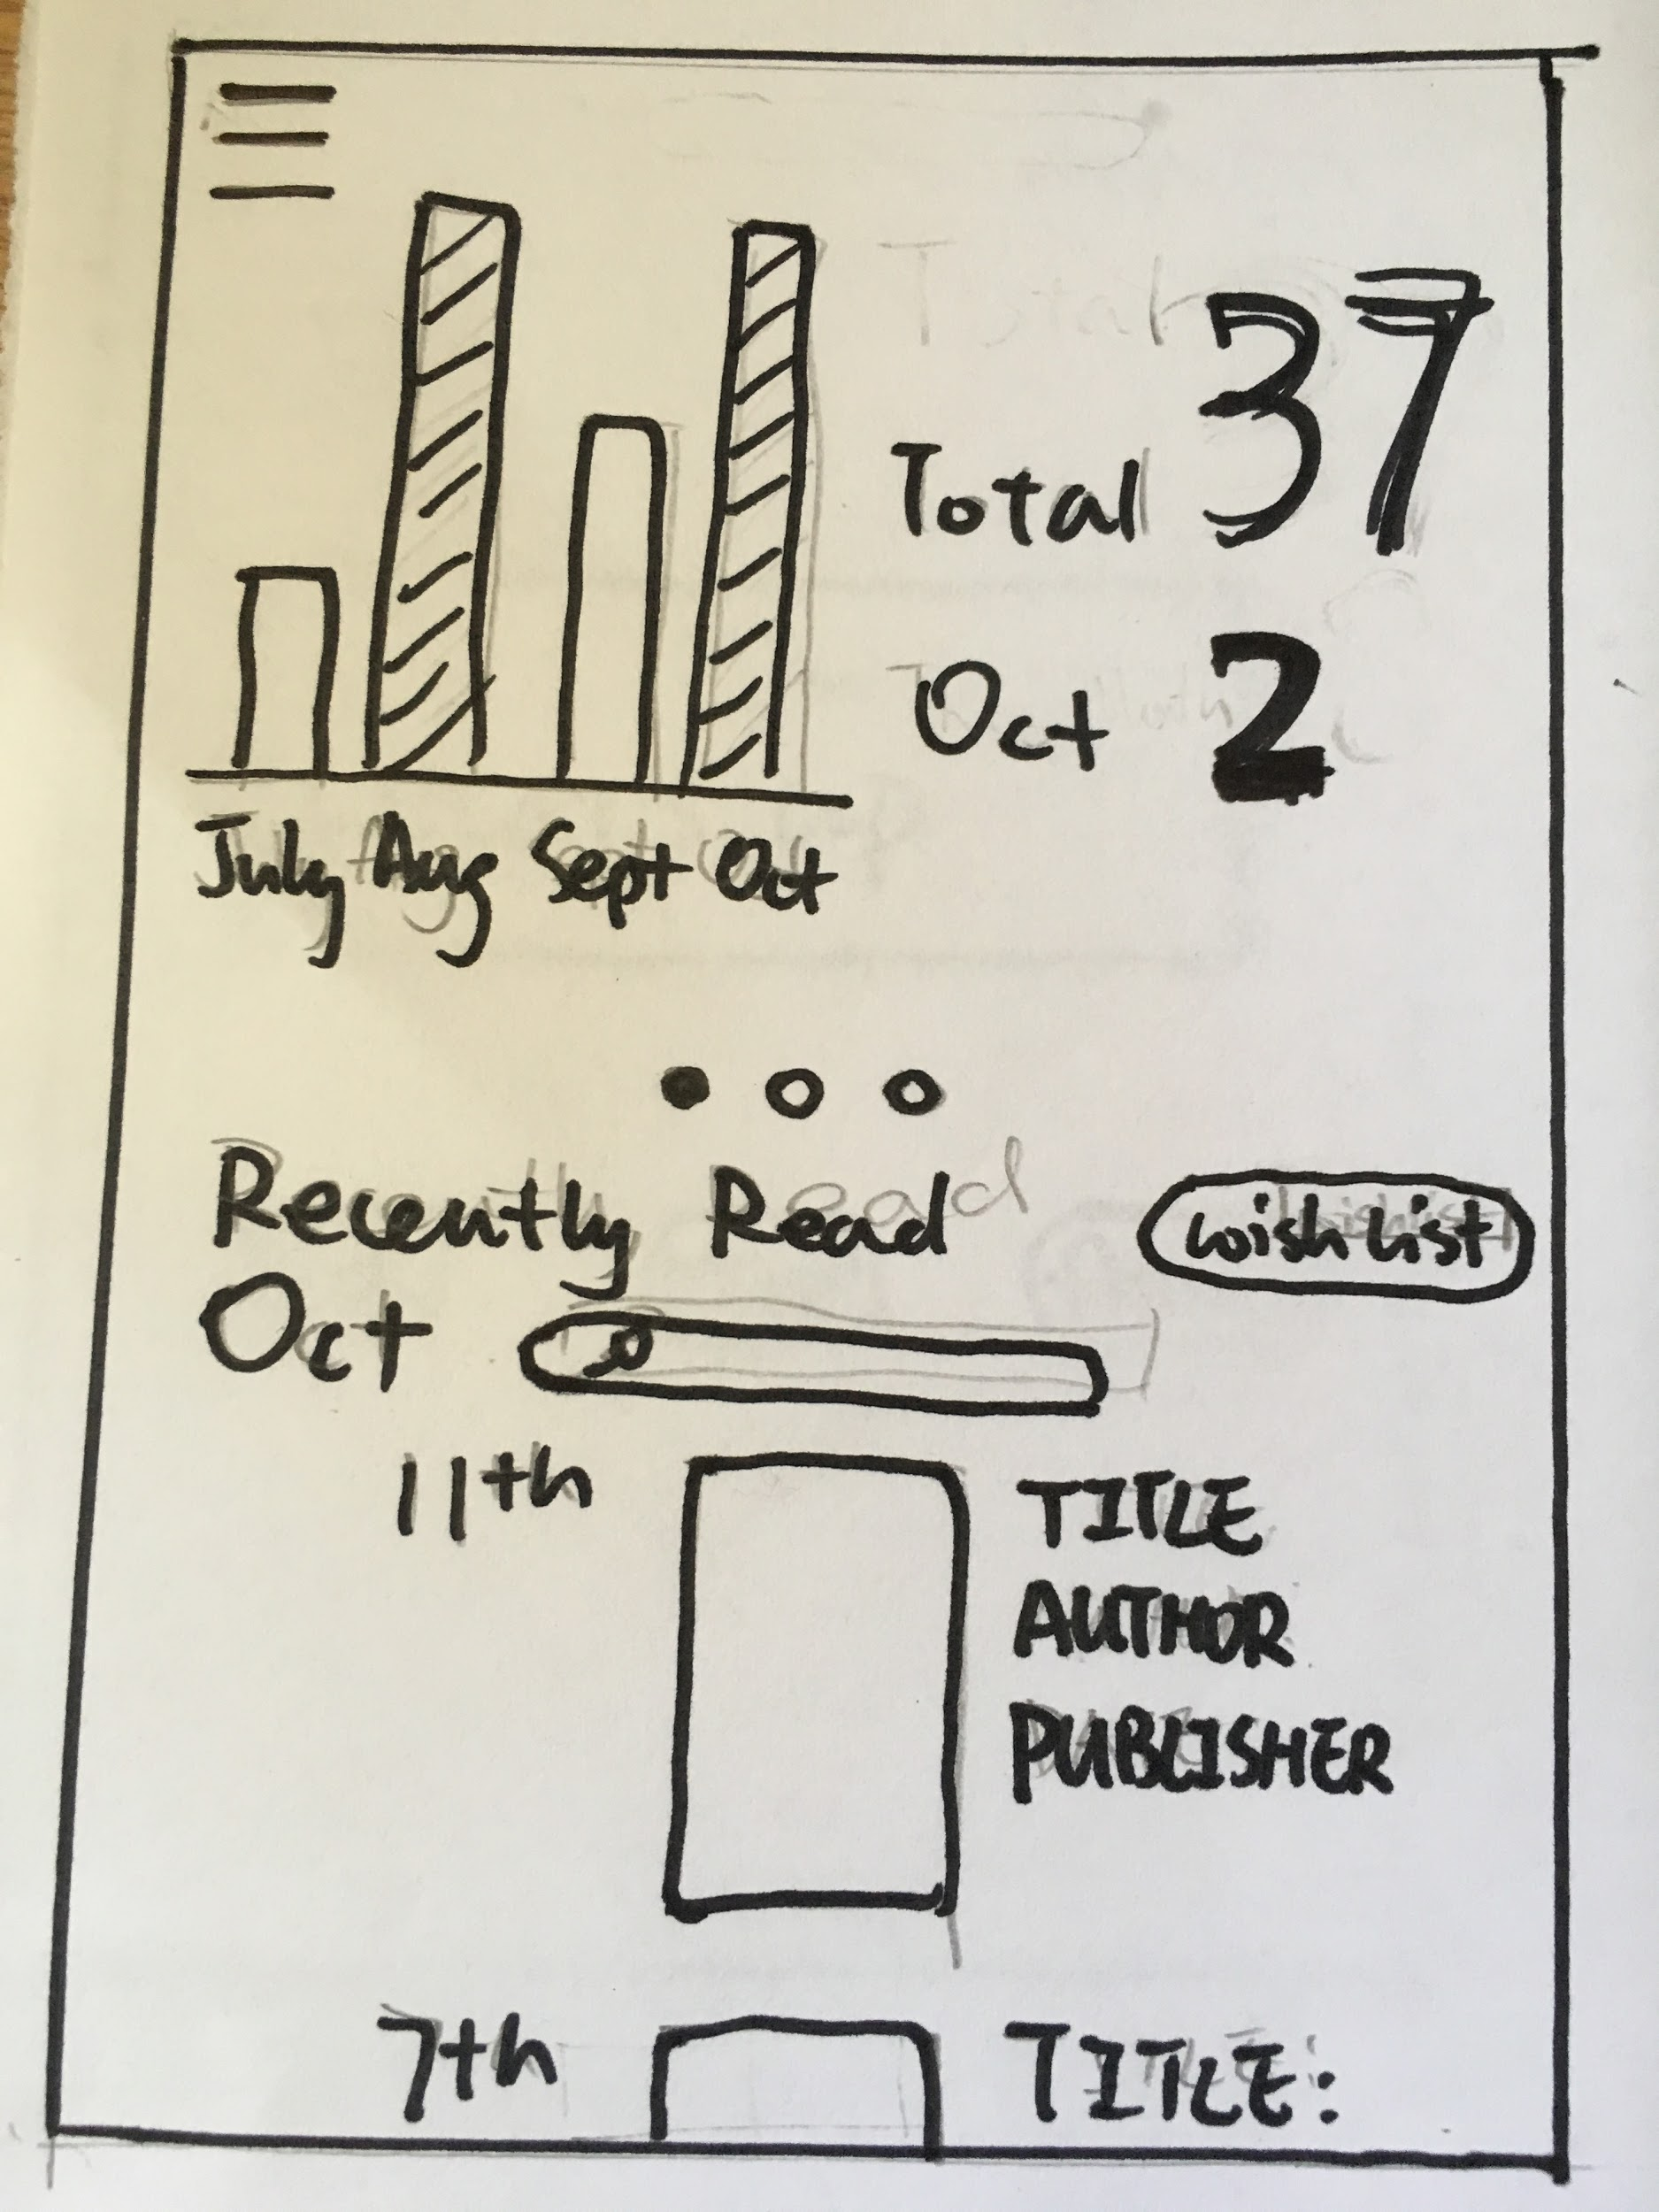 Total 37
Oct 2
July Aug Sept Oct
Recently Read
wish list
Oct
11th
TITLE
AUTHOR
PUBLISHER
7th
TITLE: